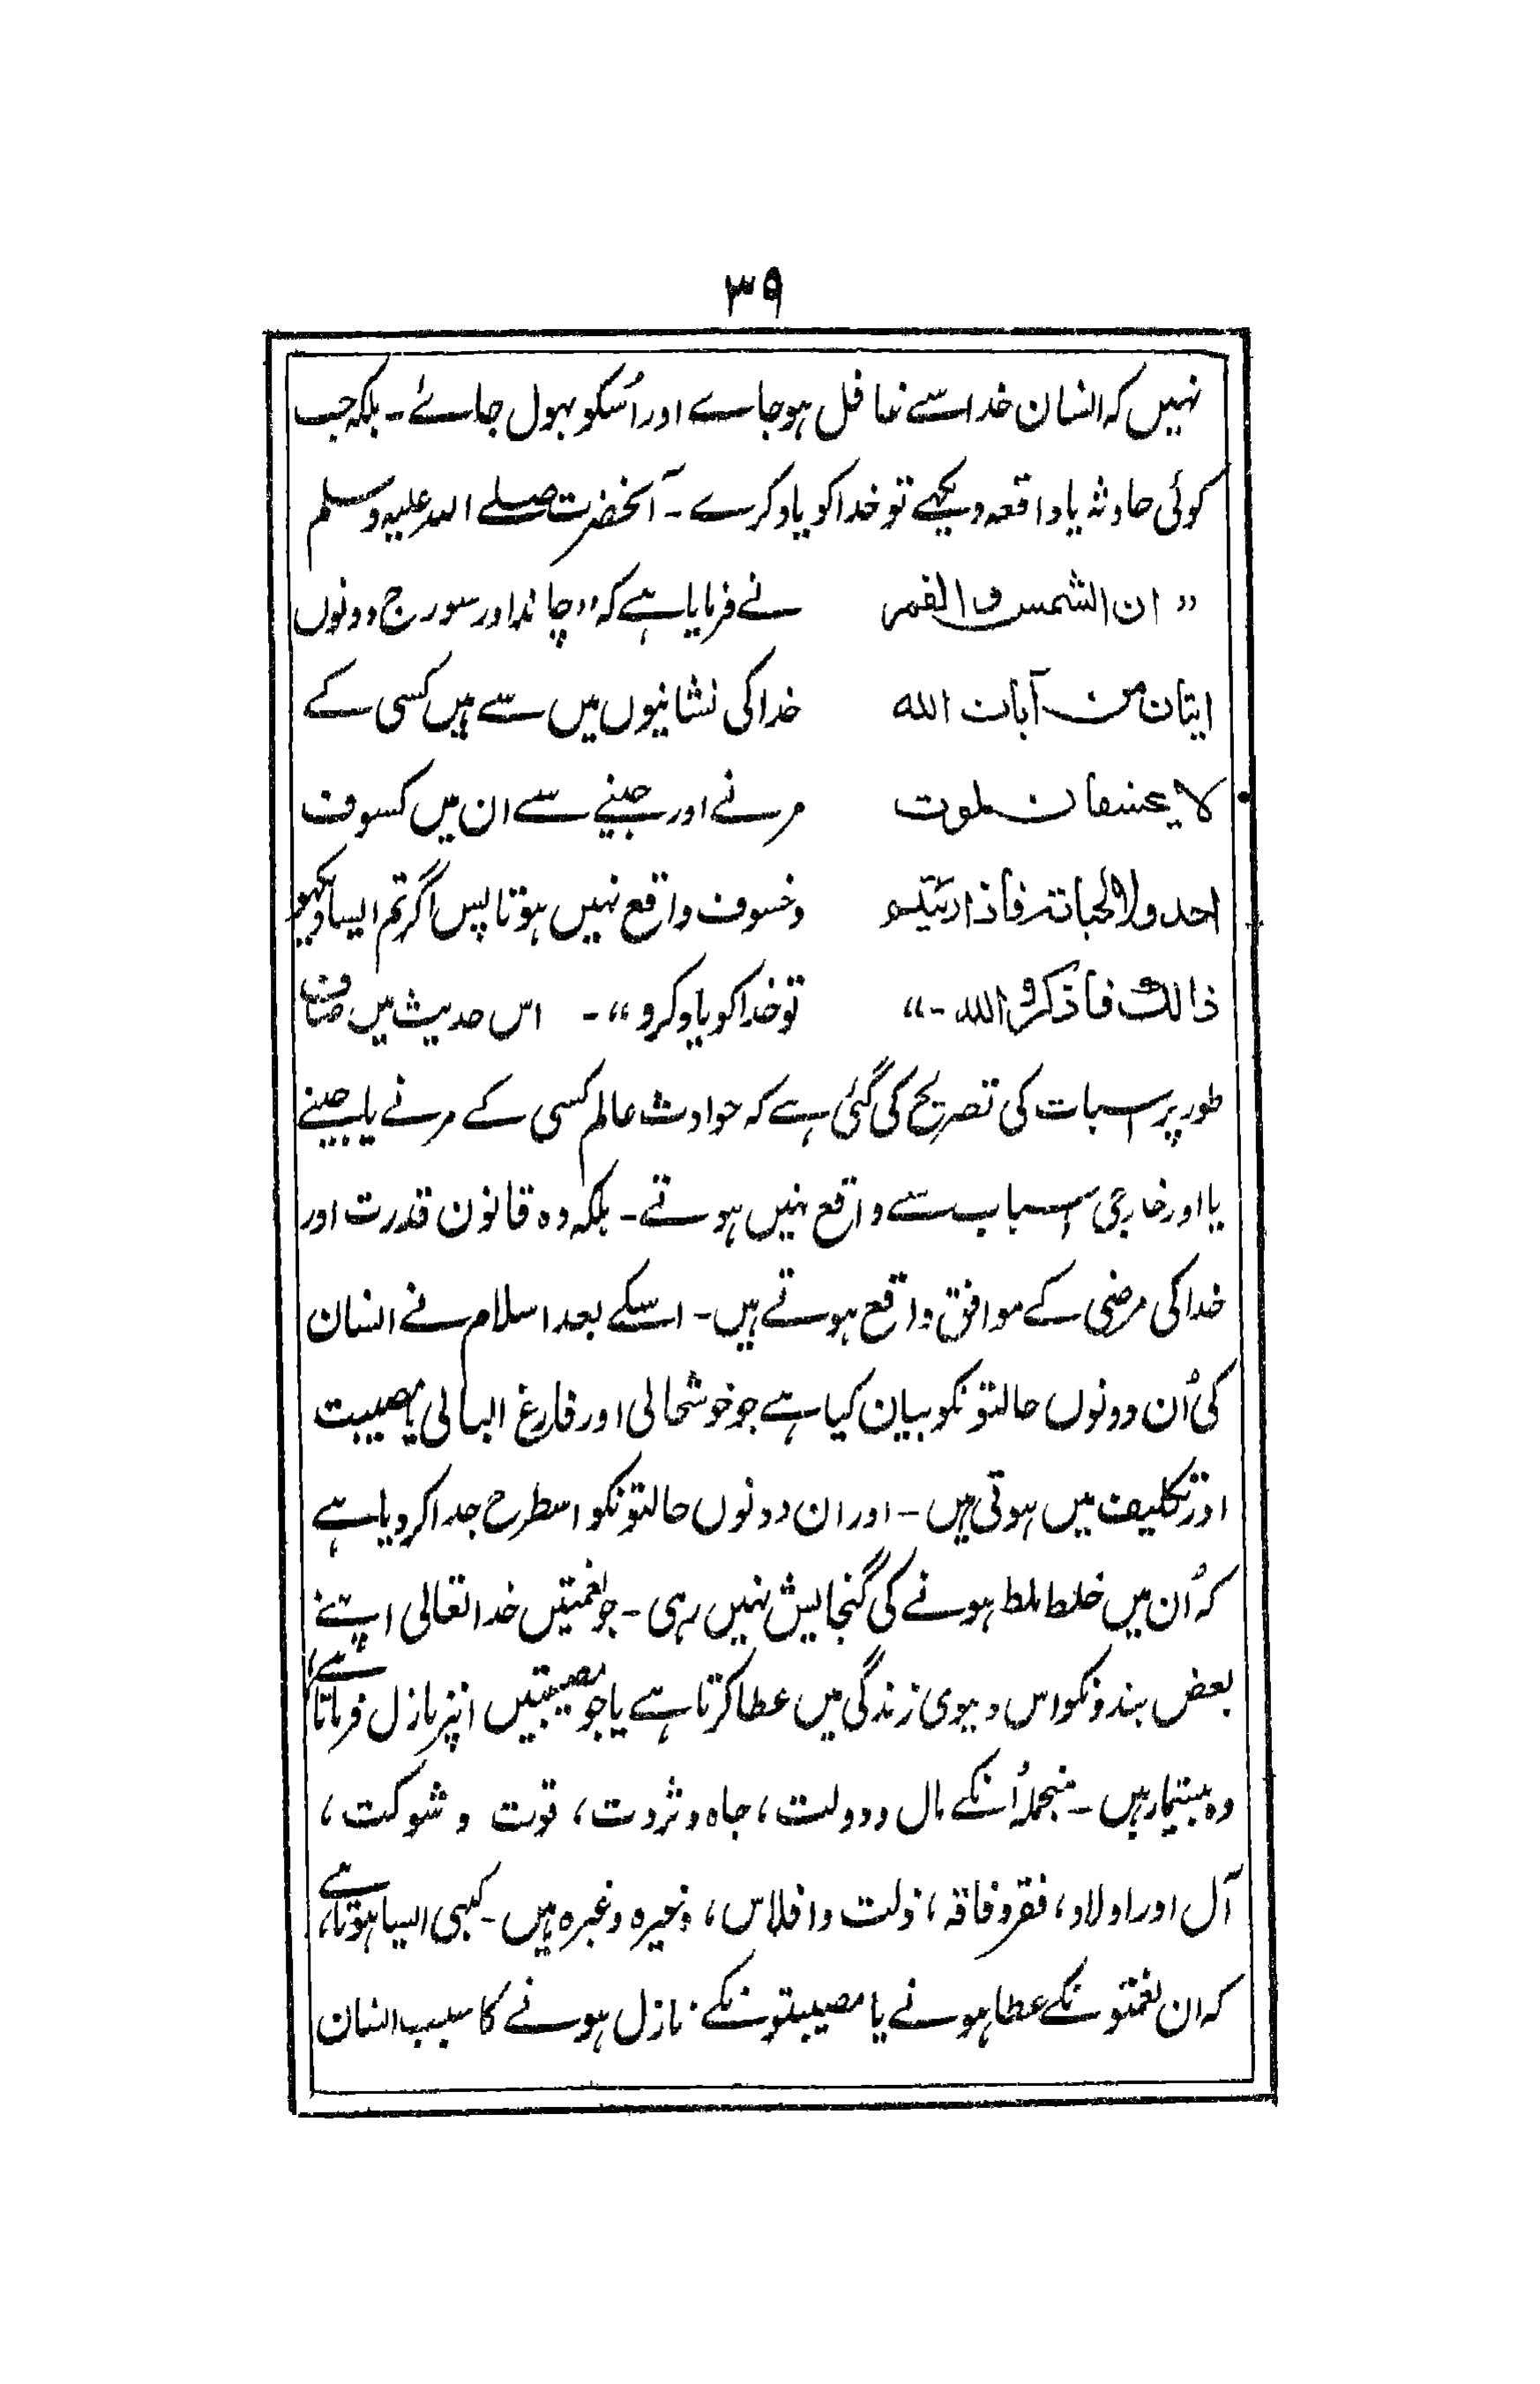 ۳۹
نہیں کہ انسان خدا سے غافل ہو جاے اور اُسکو بہول جائے۔ بلکہ جب
کوئی حادثہ یا واقعہ دیکہے تو خدا کو یاد کرے۔ آنحضرت صلے اللہ علیہ وسلم
نے فرمایا ہے کہ ”چاند اور سورج دونوں
خدا کی نشانیوں میں سے ہیں کسی کے
مرنے اور جینے سے ان میں کسوف
وخسوف واقع نہیں ہوتا پس اگر تم ایسا دیکہو
تو خدا کو یاد کرو“۔ اس حدیث میں صاف
”ان الشمس والقمر
ایتان من آیات الله
لا یخسفان لموت
احد ولا لحیاتہ فاذا رئیتم
ذالک فاذکروا الله۔“
طور پر اسبات کی تصریح کی گئی ہے کہ حوادث عالم کسی کے مرنے یا جینے
یا اور خارجی اسباب سے واقع نہیں ہوتے۔ بلکہ وہ قانون قدرت اور
خدا کی مرضی کے موافق واقع ہوتے ہیں۔ اسکے بعد اسلام نے انسان
کی اُن دونوں حالتونکو بیان کیا ہے جو خوشحالی اور فارغ البالی یا مصیبت
اور تکلیف میں ہوتی ہیں۔ اور ان دونوں حالتونکو اسطرح جدا کر دیا ہے
کہ اُن میں خلط ملط ہونے کی گنجایش نہیں رہی۔ جو نعمتیں خدا تعالی اپنے
بعض بندونکو اس دنیوی زندگی میں عطا کرتا ہے یا جو مصیبتیں انپر نازل فرماتا ہے،
وہ بیشمار ہیں۔ منجملہ اُنکے مال و دولت، جاہ و ثروت، قوت و شوکت،
آل اور اولاد، فقر و فاقہ، ذلت و افلاس، وغیرہ وغیرہ ہیں۔ کبہی ایسا ہوتا ہے،
کہ ان نعمتونکے عطا ہونے یا مصیبتونکے نازل ہونے کا سبب انسان